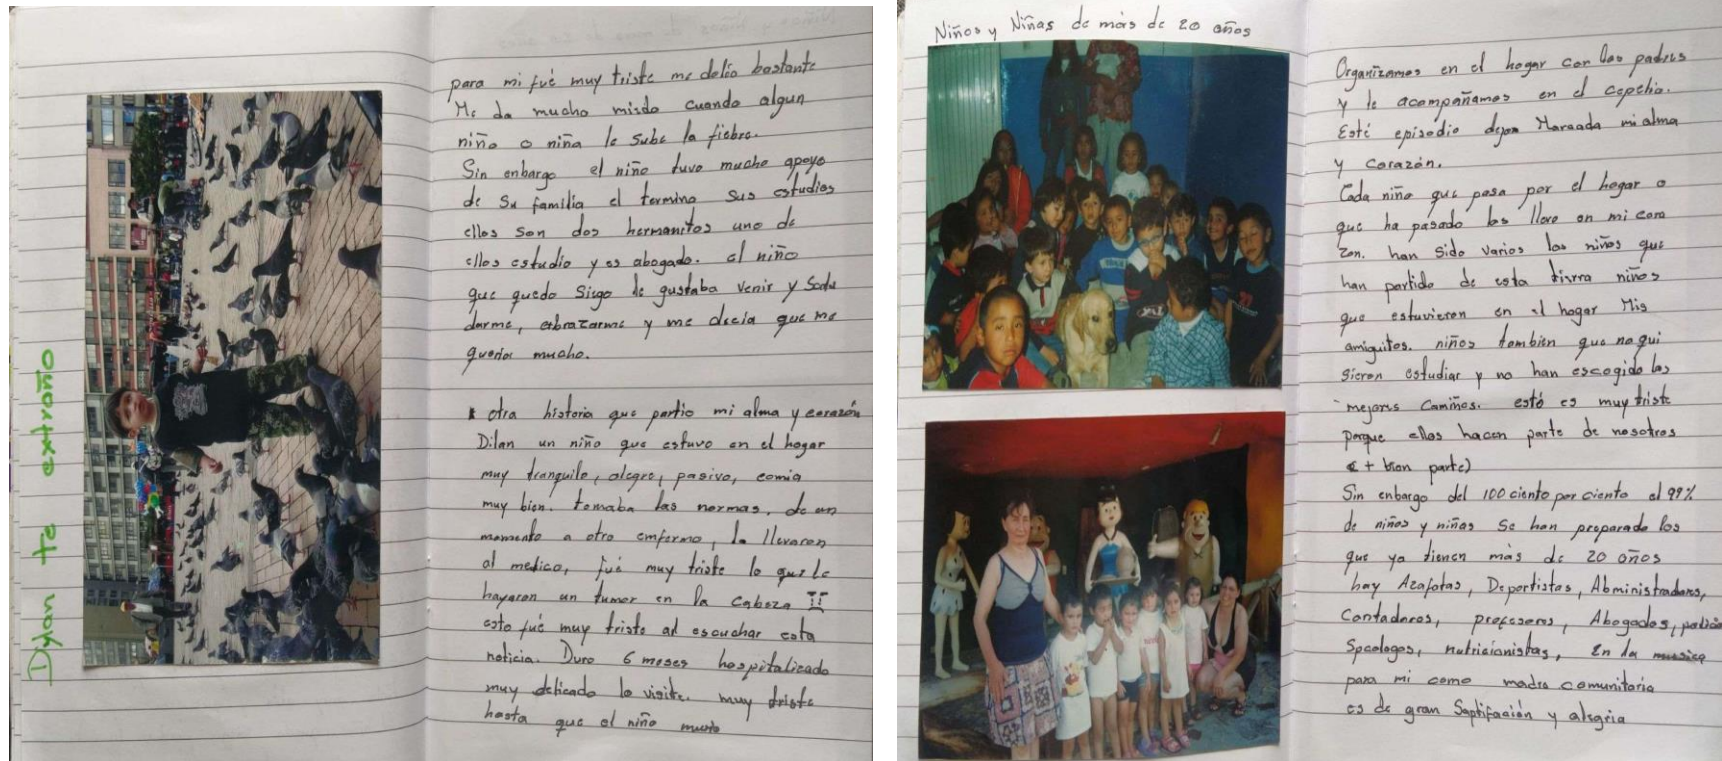 Dylan te extraño
para mi fué muy triste me dolio bastante
Me da mucho miedo cuando algun
niño o niña le sube la fiebre.
Sin enbargo el niño tuvo mucho apoyo
de su familia el termino sus estudios
ellos son dos hermanitos uno de
ellos estudio y es abogado. el niño
que quedo siego le gustaba venir y salu
darme, abrazarme y me decia que me
queria mucho.
otra historia que partio mi alma y corazón
Dilan un niño que estuvo en el hogar
muy tranquilo, alegre, pasivo, comia
muy bien. tomaba las normas, de un
momento a otro emfermo, lo llevaron
al medico, fué muy triste lo que le
hayaron un tumor en la cabeza
esto fué muy triste al escuchar esta
noticia. Duro 6 meses hospitalizado
muy delicado lo visite. muy triste
hasta que el niño murio
Niños y Niñas de más de 20 años
Organizamos en el hogar con los padres
y le acompañamos en el cepelio.
Esté episodio dejo Marcada mi alma
y corazón.
Cada niño que pasa por el hogar o
que ha pasado los llevo en mi cora
zon. han sido varios los niños que
han partido de esta tierra niños
que estuvieron en el hogar Mis
amiguitos. niños tambien que no qui
sieron estudiar y no han escogido los
mejores caminos. esto es muy triste
porque ellos hacen parte de nosotros
+ bien parte)
Sin enbargo del 100 ciento por ciento el 99%
de niños y niñas se han preparado los
que ya tienen más de 20 años
hay Azafatas, Deportistas, Abministradores,
Contadores, profesores, Abogados,
Spcologos, nutricionistas, En la musica
para mi como madre comunitaria
es de gran Saptifación y alegria